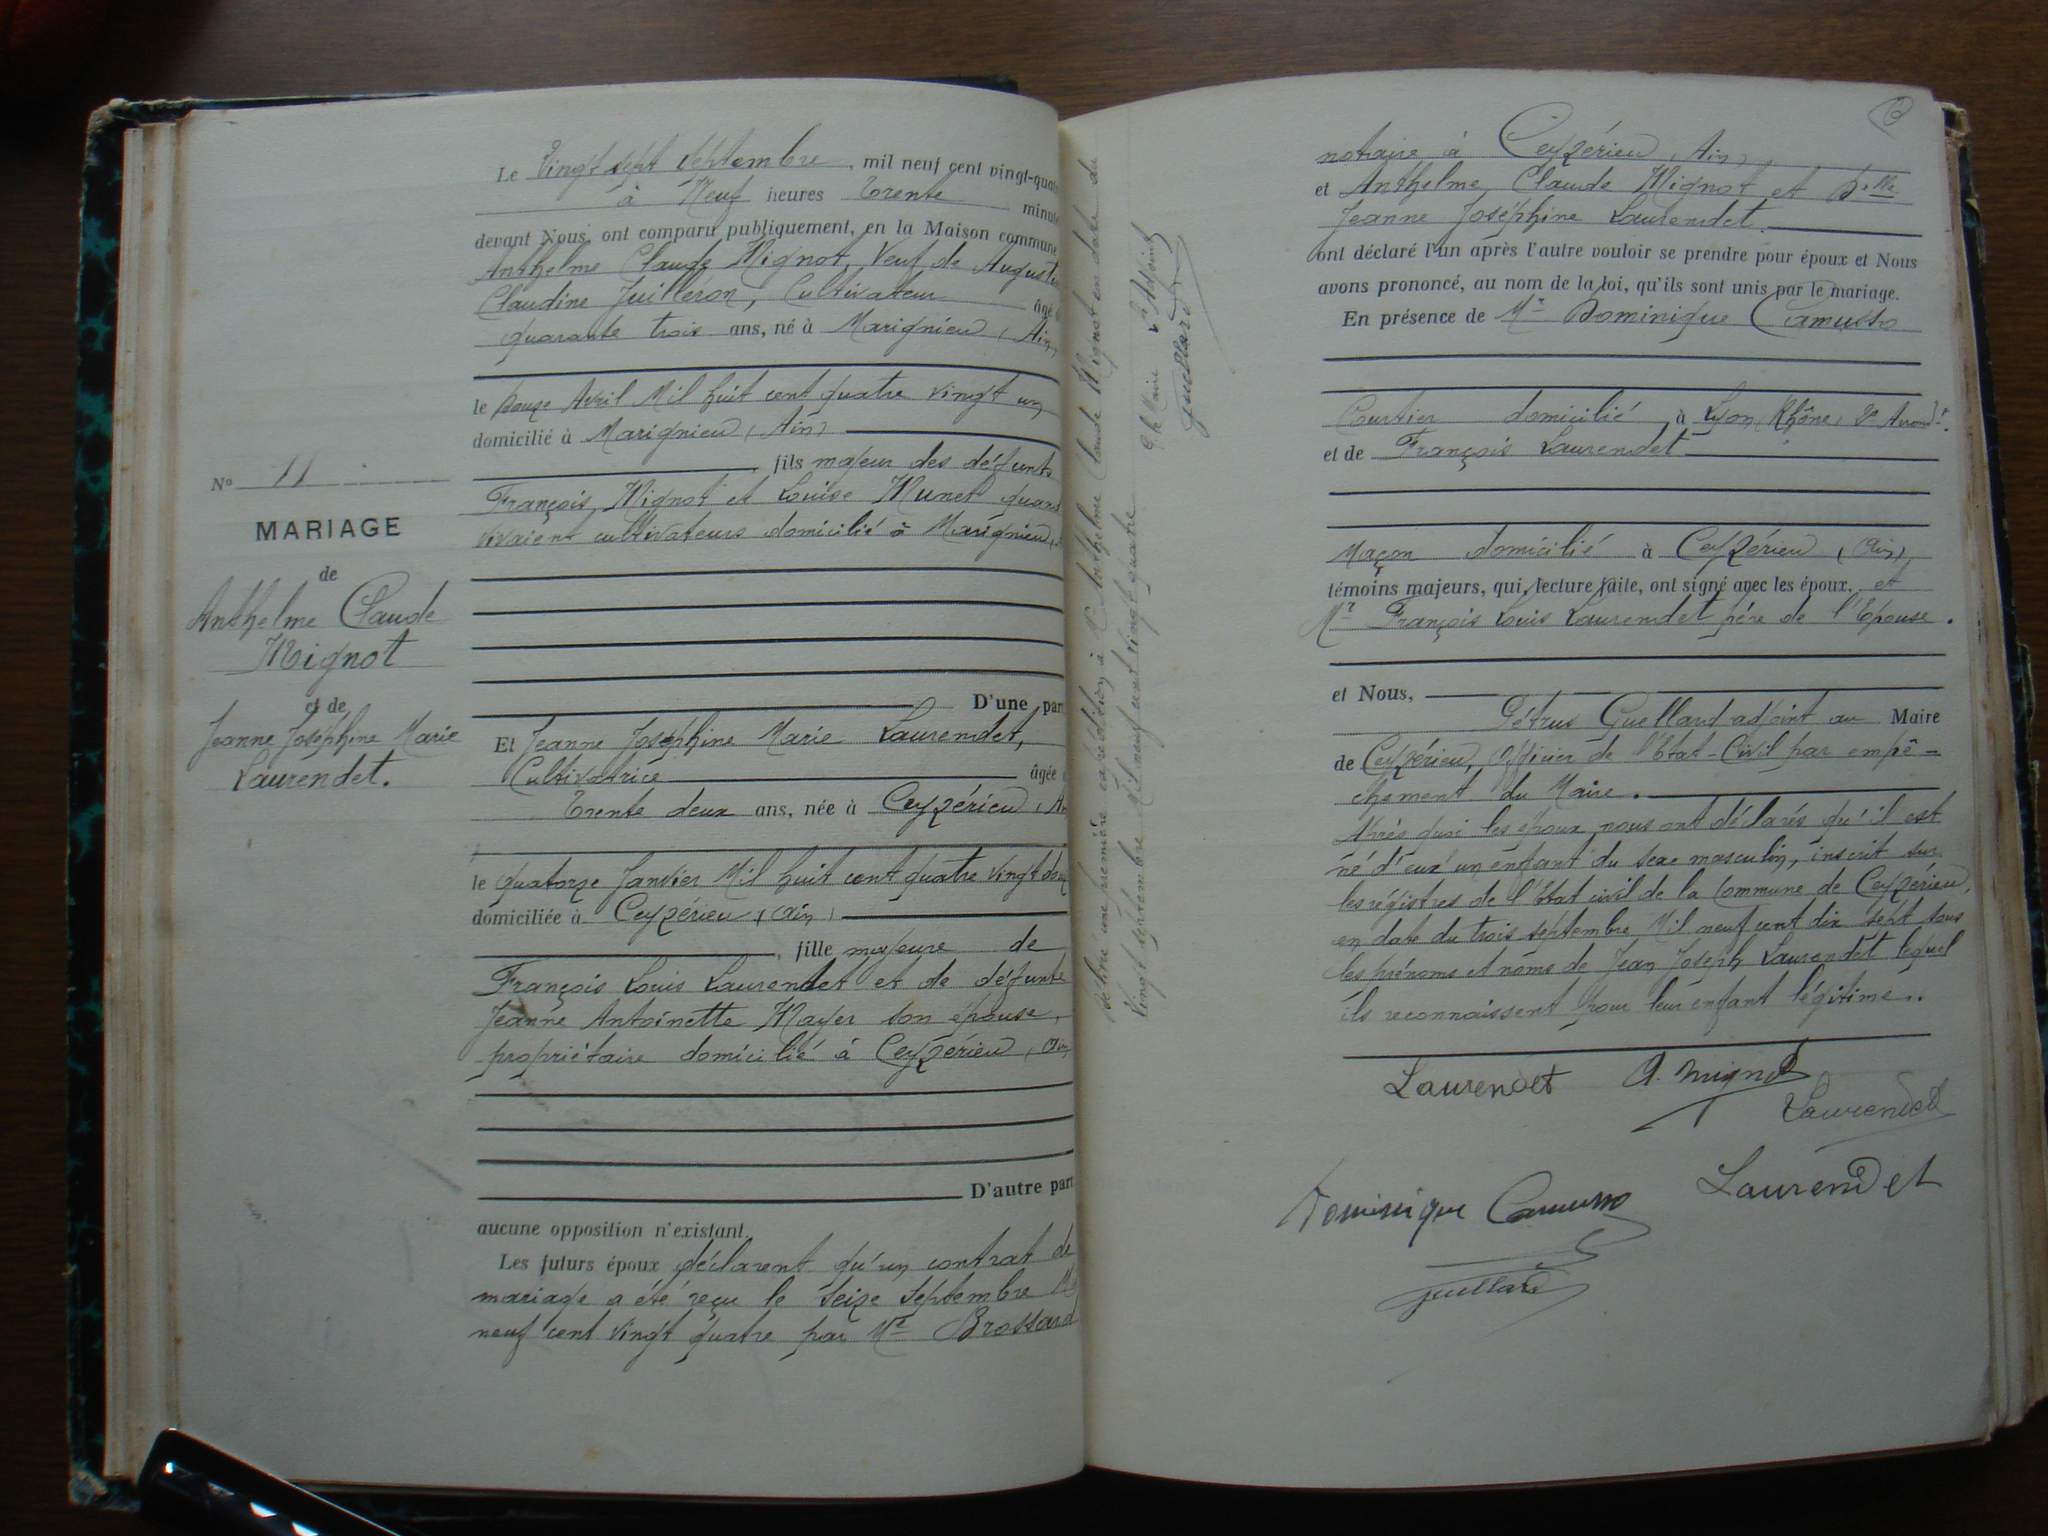 N° 11
MARIAGE
de
Anthelme Claude
Mignot
et de
Jeanne Joséphine Marie
Laurendet.
Le Vingt sept septembre, mil neuf cent vingt-quat
à Neuf heures Trente minute
devant Nous, ont comparu publiquement, en la Maison commune
Anthelme Claude Mignot, Veuf de Augusti
Claudine Juilleron, Cultivateur âgé
quarante trois ans, né à Marignieu (Ain)
le Douze Avril Mil huit cent quatre vingt un
domicilié à Marignieu (Ain)
fils majeur des défunts
François Mignot et Louise Munet quand
vivaient cultivateurs domicilié à Marignieu
D'une part
Et Jeanne Joséphine Marie Laurendet,
Cultivatrice âgée
Trente deux ans, née à Ceyzérieu (Ai
le quatorze Janvier Mil huit cent quatre vingt douz
domiciliée à Ceyzérieu (Ain)
fille majeure de
François Louis Laurendet et de défunte
Jeanne Antoinette Mayer son épouse,
propriétaire domicilié à Ceyzérieu (Ain
D'autre part
aucune opposition n'existant.
Les futurs époux déclarent qu'un contrat de
mariage a été reçu le seize septembre M
neuf cent vingt quatre par Me Brossard
Délivré une première expédition à Mr Anthelme Claude Mignot en date du
Vingt septembre Mil neuf cent vingt quatre
P. le Maire L'Adjoint
Guellard
notaire à Ceyzérieu (Ain)
et Anthelme Claude Mignot et Delle
Jeanne Joséphine Laurendet.
ont déclaré l'un après l'autre vouloir se prendre pour époux et Nous
avons prononcé, au nom de la loi, qu'ils sont unis par le mariage.
En présence de Mr Dominique Camusso
Courtier domicilié à Lyon (Rhône) 2e Arrondt.
et de François Laurendet
Maçon domicilié à Ceyzérieu (Ain)
témoins majeurs, qui, lecture faite, ont signé avec les époux, et
Mr François Louis Laurendet père de l'Epouse.
et Nous,
Pétrus Guellard adjoint au Maire
de Ceyzérieu, officier de l'Etat-Civil par empê-
chement du Maire.
Après quoi les époux nous ont déclarés qu'il est
né d'eux un enfant du sexe masculin, inscrit sur
les régistres de l'état civil de la Commune de Ceyzérieu,
en date du trois septembre Mil neuf cent dix sept sous
les prénoms et noms de Jean Joseph Laurendet lequel
ils reconnaissent pour leur enfant légitime..
Laurendet A. Mignot
Laurendet
Laurendet
Dominique Camusso
Guellard